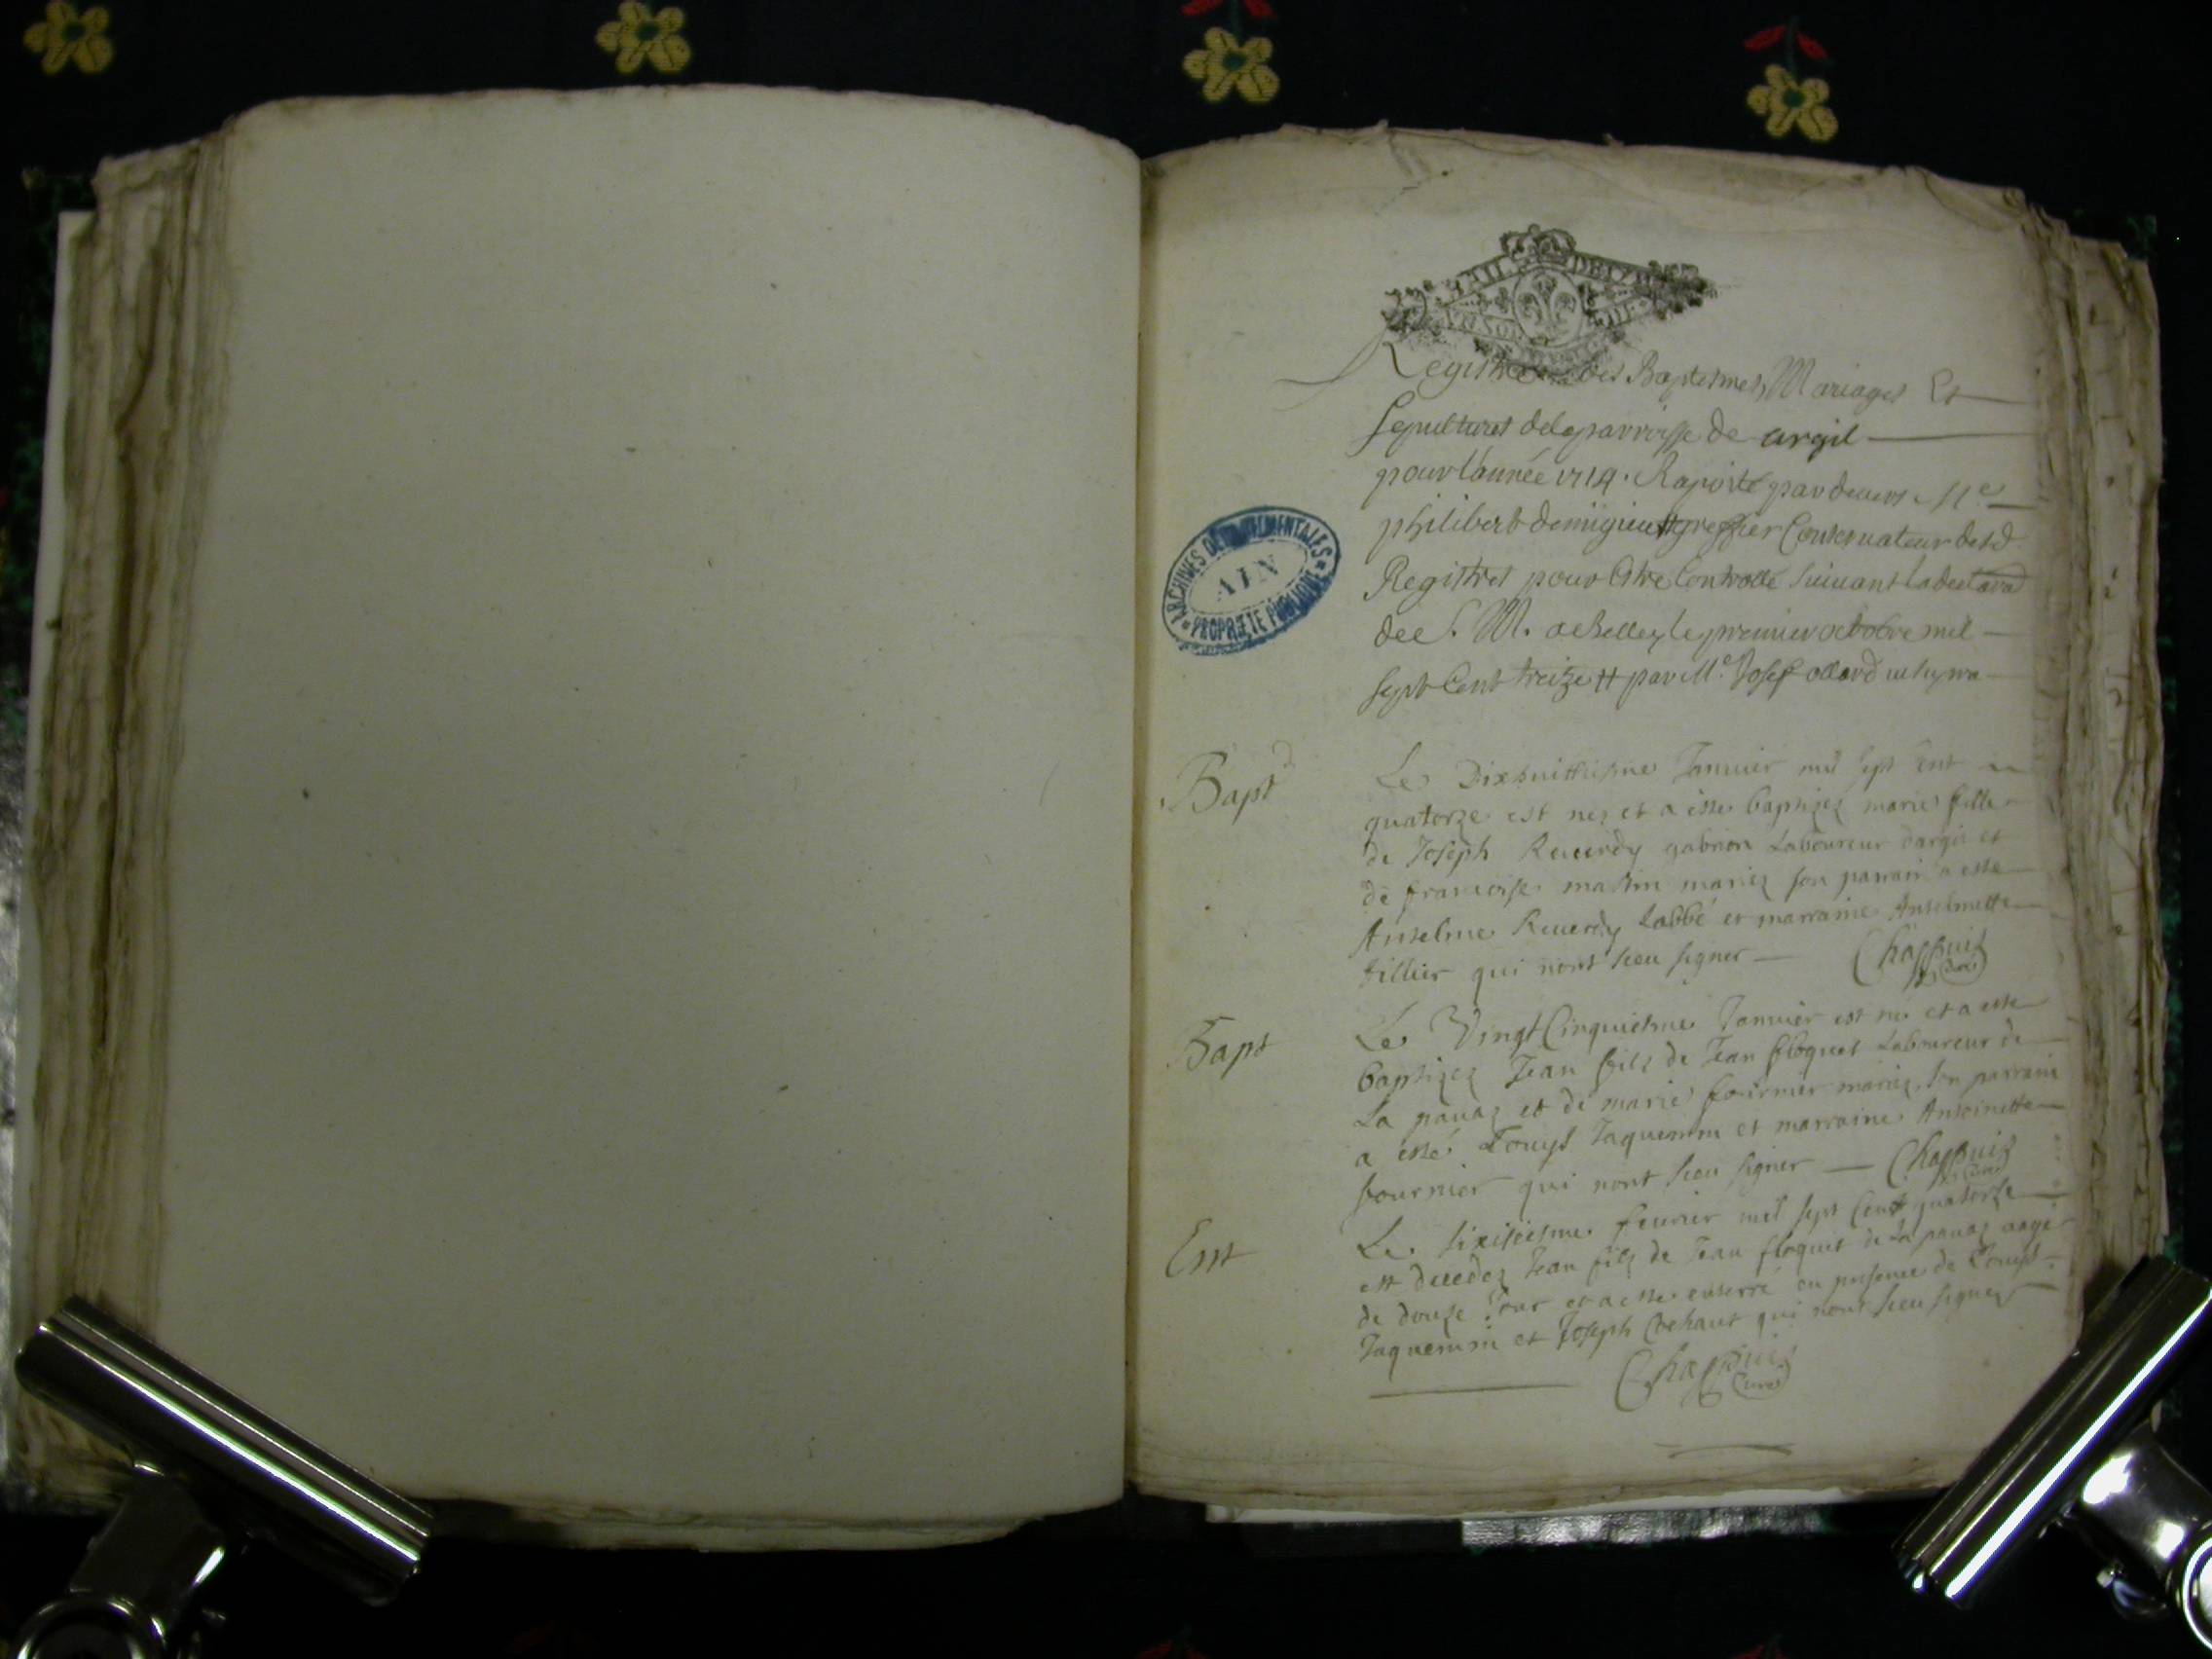 Registre des Baptesmes, Mariages Et
Sepultures de la parroisse de argil
pour l'année 1714. Raporté pardevers Me
philibert demigieu greffier Conservateur desd
Registres pour Estre Controllé suivant la declaraõ
de S. M. a Belley le premier octobre mil
sept Cent treize par Me Josef
ARCHIVES DEPARTEMENTALES
AIN
PROPRIETE PUBLIQUE
Bapt
Le Dixhuittiesme Januier mil sept Cent
quatorze est nez et a esté baptizez marie fille
de Joseph Reuerdy gabrion Laboureur dargis et
de francoise mariez son parrain a esté
Anselme Reuerdy Labbé et marraine Anselmette
tillier qui nont sceu signer Chappuis
Curé
Bapt
Le Vingt Cinquiesme Januier est né et a esté
baptizez Jean filz de Jean floquet Laboureur de
La pauaz et de marie fournier mariez, son parrain
a esté Louys Jaquemin et marraine Antoinette
fournier qui nont sceu signer Chappuis
Curé
Ent
Le sixiesme feurier mil sept Cent quatorze
est decedez Jean filz de Jean floquet de La pauaz aagé
de douze Jour et a esté enterré en presence de Louys
Jaquemin et Joseph qui nont sceu signer
Chappuis
Curé